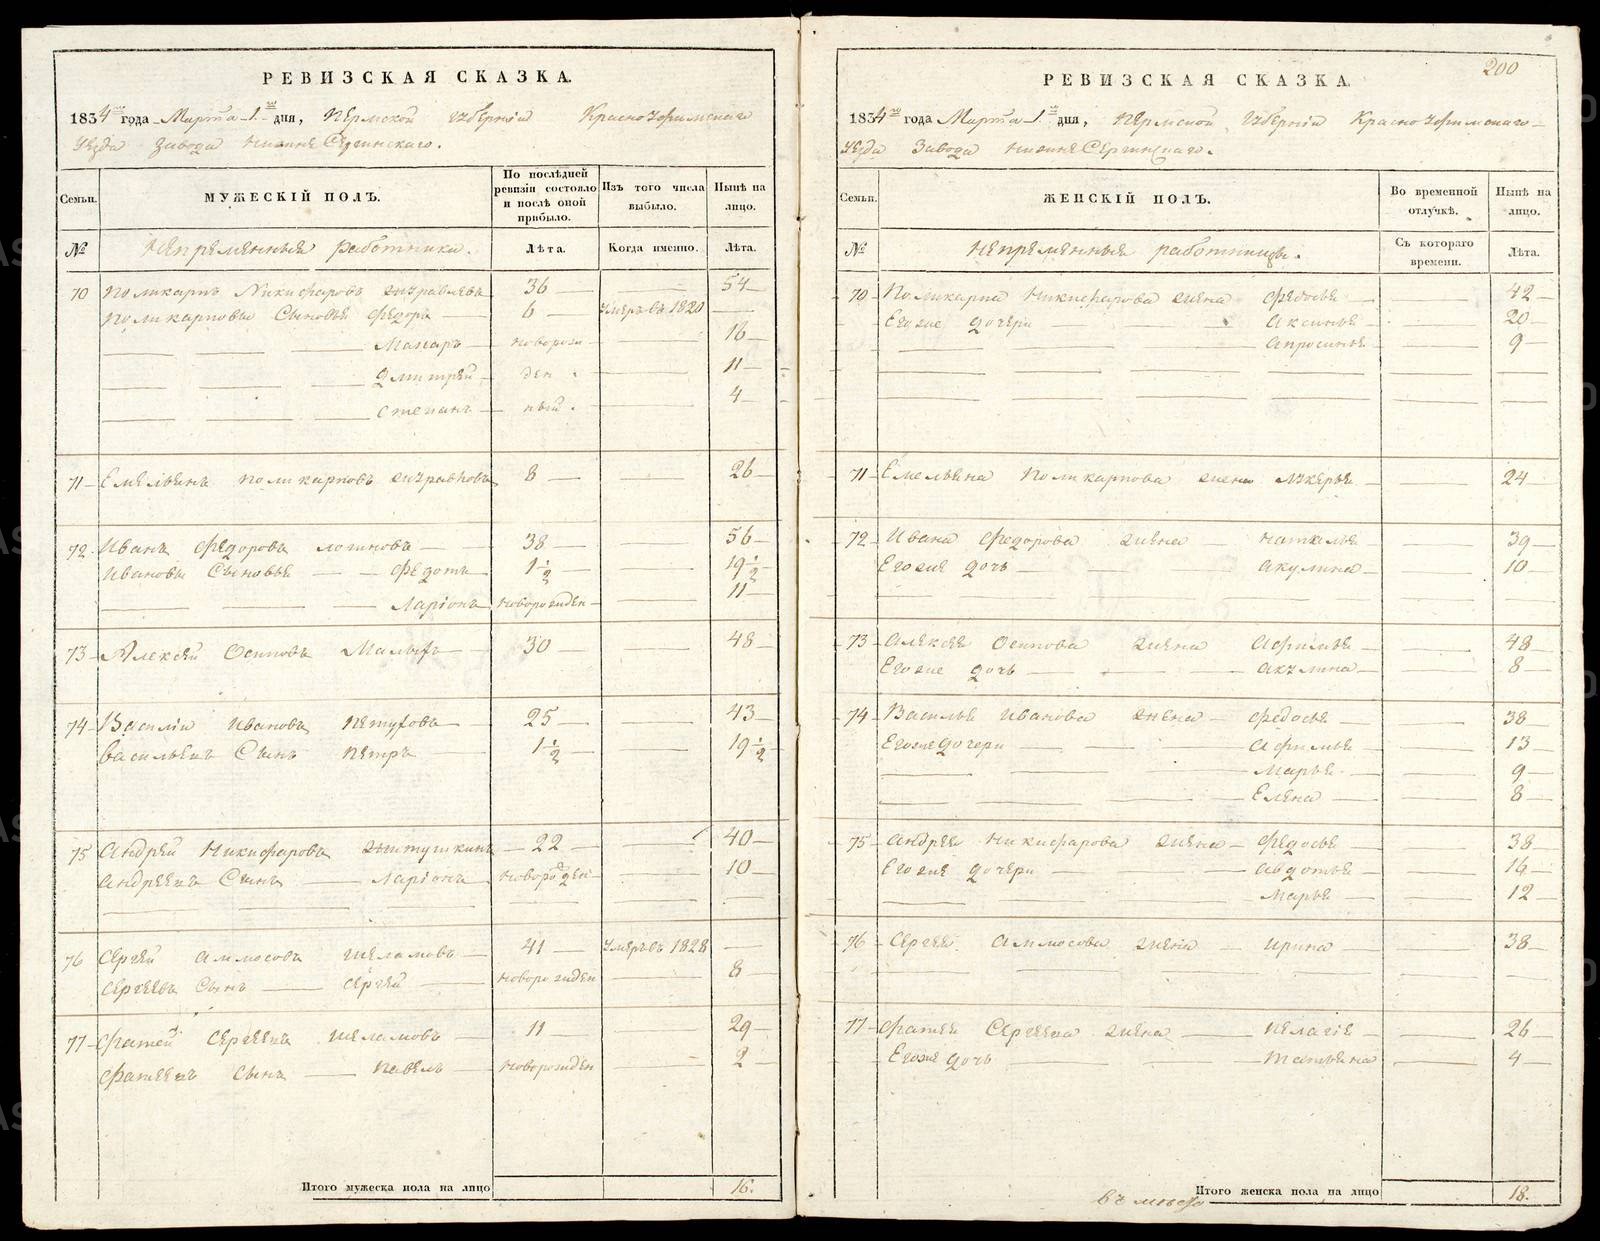 РЕВИЗСКАЯ СКАЗКА.
1834 года Марта 1. дня, Пермской губернїи Красноуфимскаго
уезда завода НижнеСергинскаго.
Семьи.
МУЖЕСКІЙ ПОЛЪ.
По послѣдней ревизіи состояло и послѣ оной прибыло.
Изъ того числа выбыло.
Нынѣ на лицо.
№
Непременныя работники.
Лѣта.
Когда именно.
Лѣта.
70 Поликарпъ Никифаровъ 36 — 54
Поликарповы Сыновья Федоръ 6 умеръ въ 1820 —
Макаръ новорож 16
Дмитрей ден 11
Степанъ ный. 4
71 Емельянъ Поликарповъ 8 — 26
72 Иванъ Федоровъ Логиновъ 38 — 56
Ивановы Сыновья Федотъ 1½ — 19½
Ларіонъ новорожден — 11
73 Алексей Осиповъ Малыхъ 30 — 48
74 Василіи Ивановъ Петуховъ 25 — 43
Васильевъ Сынъ Петръ 1½ — 19½
75 Андрей Никифаровъ 22 — 40
Андреевъ Сынъ Ларіонъ новорожден — 10
76 Сергей Аммосовъ Шеламовъ 41 умеръ въ 1828 —
Сергеевъ Сынъ Сергей новорожден — 8
77 Фатей Сергеевъ Шеламовъ 11 — 29
Фатеевъ Сынъ Павелъ новорожден — 2
Итого мужеска пола на лицо 16.
200
РЕВИЗСКАЯ СКАЗКА.
1834 года Марта 1. дня, Пермской губернїи Красноуфимскаго
уезда завода НижнеСергинскаго.
Семьи.
ЖЕНСКІЙ ПОЛЪ.
Во временной отлучкѣ.
Нынѣ на лицо.
№
Непременныя работницы.
Съ котораго времени.
Лѣта.
70 Поликарпа Никифарова жена Федосья — 42
Егоже дочери Аксинья — 20
Апросинья — 9
71 Емельяна Поликарпова жена Лукерья — 24
72 Ивана Федорова жена Наталья — 39
Егоже дочь Акулина — 10
73 Алексея Осипова жена Афимья — 48
Егоже дочь Акулина — 8
74 Василья Иванова жена Федосья — 38
Егоже дочери Афимья — 13
Марья — 9
Елена — 8
75 Андрея Никифарова жена Федосья — 38
Егоже дочери Авдотья — 16
Марья — 12
76 Сергея Аммосова жена Ирина — 38
77 Фатея Сергеева жена Пелагіе — 26
Егоже дочь Татьяна — 4
Итого женска пола на лицо 18.